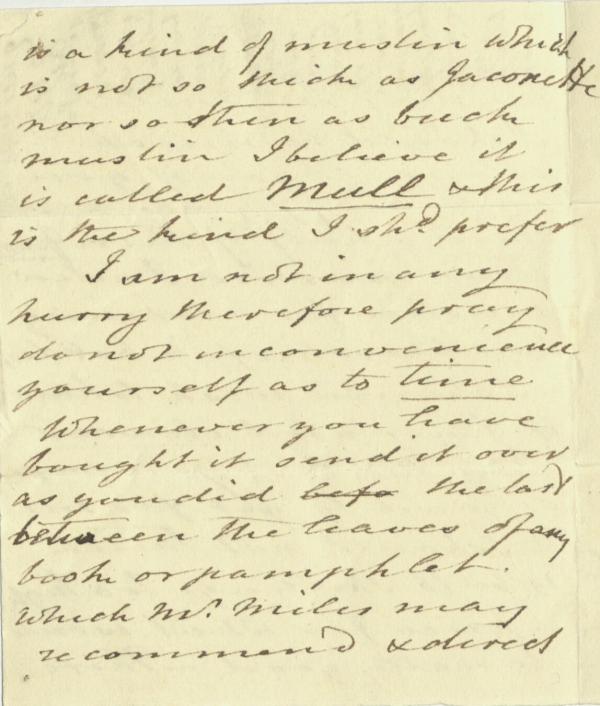 is a kind of muslin which
is not so thick as Jaconette
nor so thin as book
muslin I believe it
is called Mull & this
is the kind I shd. prefer
I am not in any
hurry therefore pray
do not inconvenience
yourself as to time
Whenever you have
bought it send it over
as you did befo the last
between the leaves of any
book or pamphlet.
which Mr. Miles may
recommend & direct